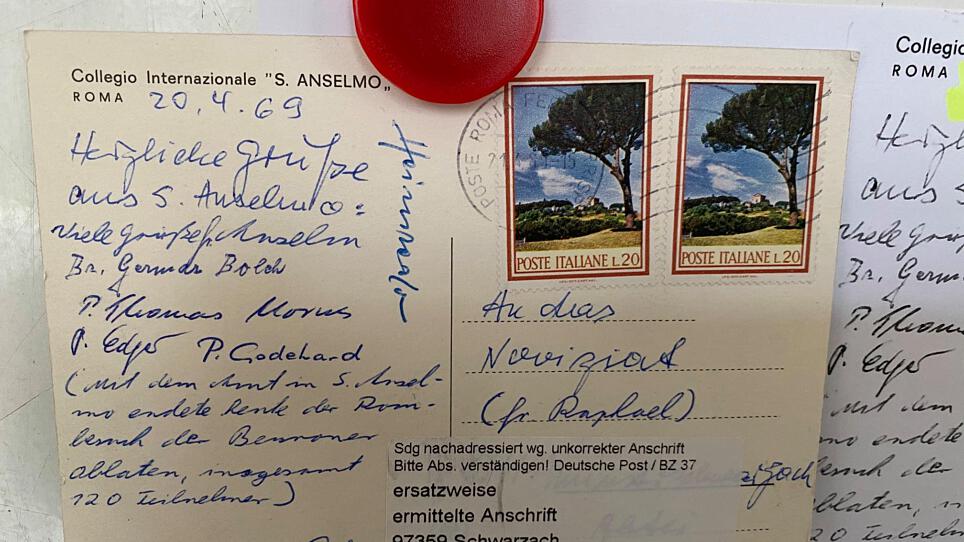 Collegio Internazionale "S. ANSELMO"
ROMA
20.4.69
Herzliche Grüße
aus S. Anselmo:
Viele Grüße P. Anselm
Br. German Bolch
P. Thomas Morus
P. Edgar P. Godehard
(Mit dem Amt in S. Ansel-
mo endete heute der Rom-
besuch der Beuroner
oblaten, insgesamt
120 Teilnehmer)
POSTE ROMA FE
POSTE ITALIANE L.20
POSTE ITALIANE L.20
An das
Noviziat
(fr Raphael)
Sdg nachadressiert wg. unkorrekter Anschrift
Bitte Abs. verständigen! Deutsche Post / BZ 37
ersatzweise
ermittelte Anschrift
97359 Schwarzach
Collegio
ROMA